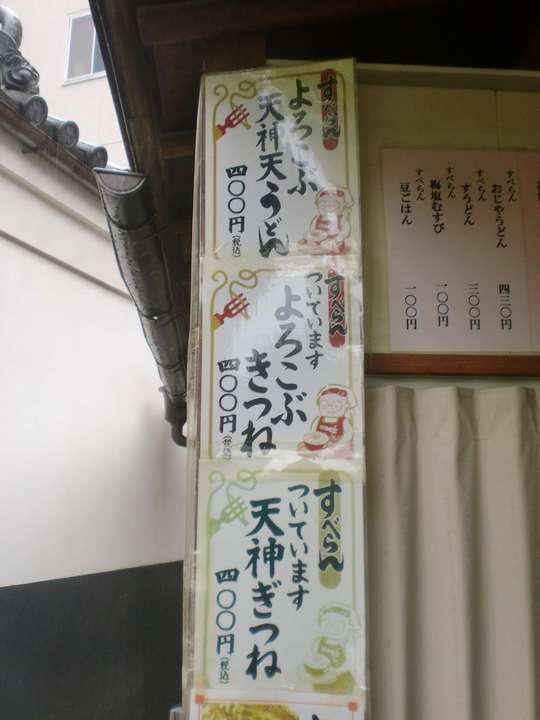 すべらん
よろこぶ
天神天うどん
四〇〇円(税込)
すべらん
ついています
よろこぶ
きつね
四〇〇円(税込)
すべらん
ついています
天神ぎつね
四〇〇円(税込)
すべらん
おじやうどん 四三〇円
すべらん
すうどん 三〇〇円
すべらん
梅塩むすび 一〇〇円
すべらん
豆ごはん 一〇〇円